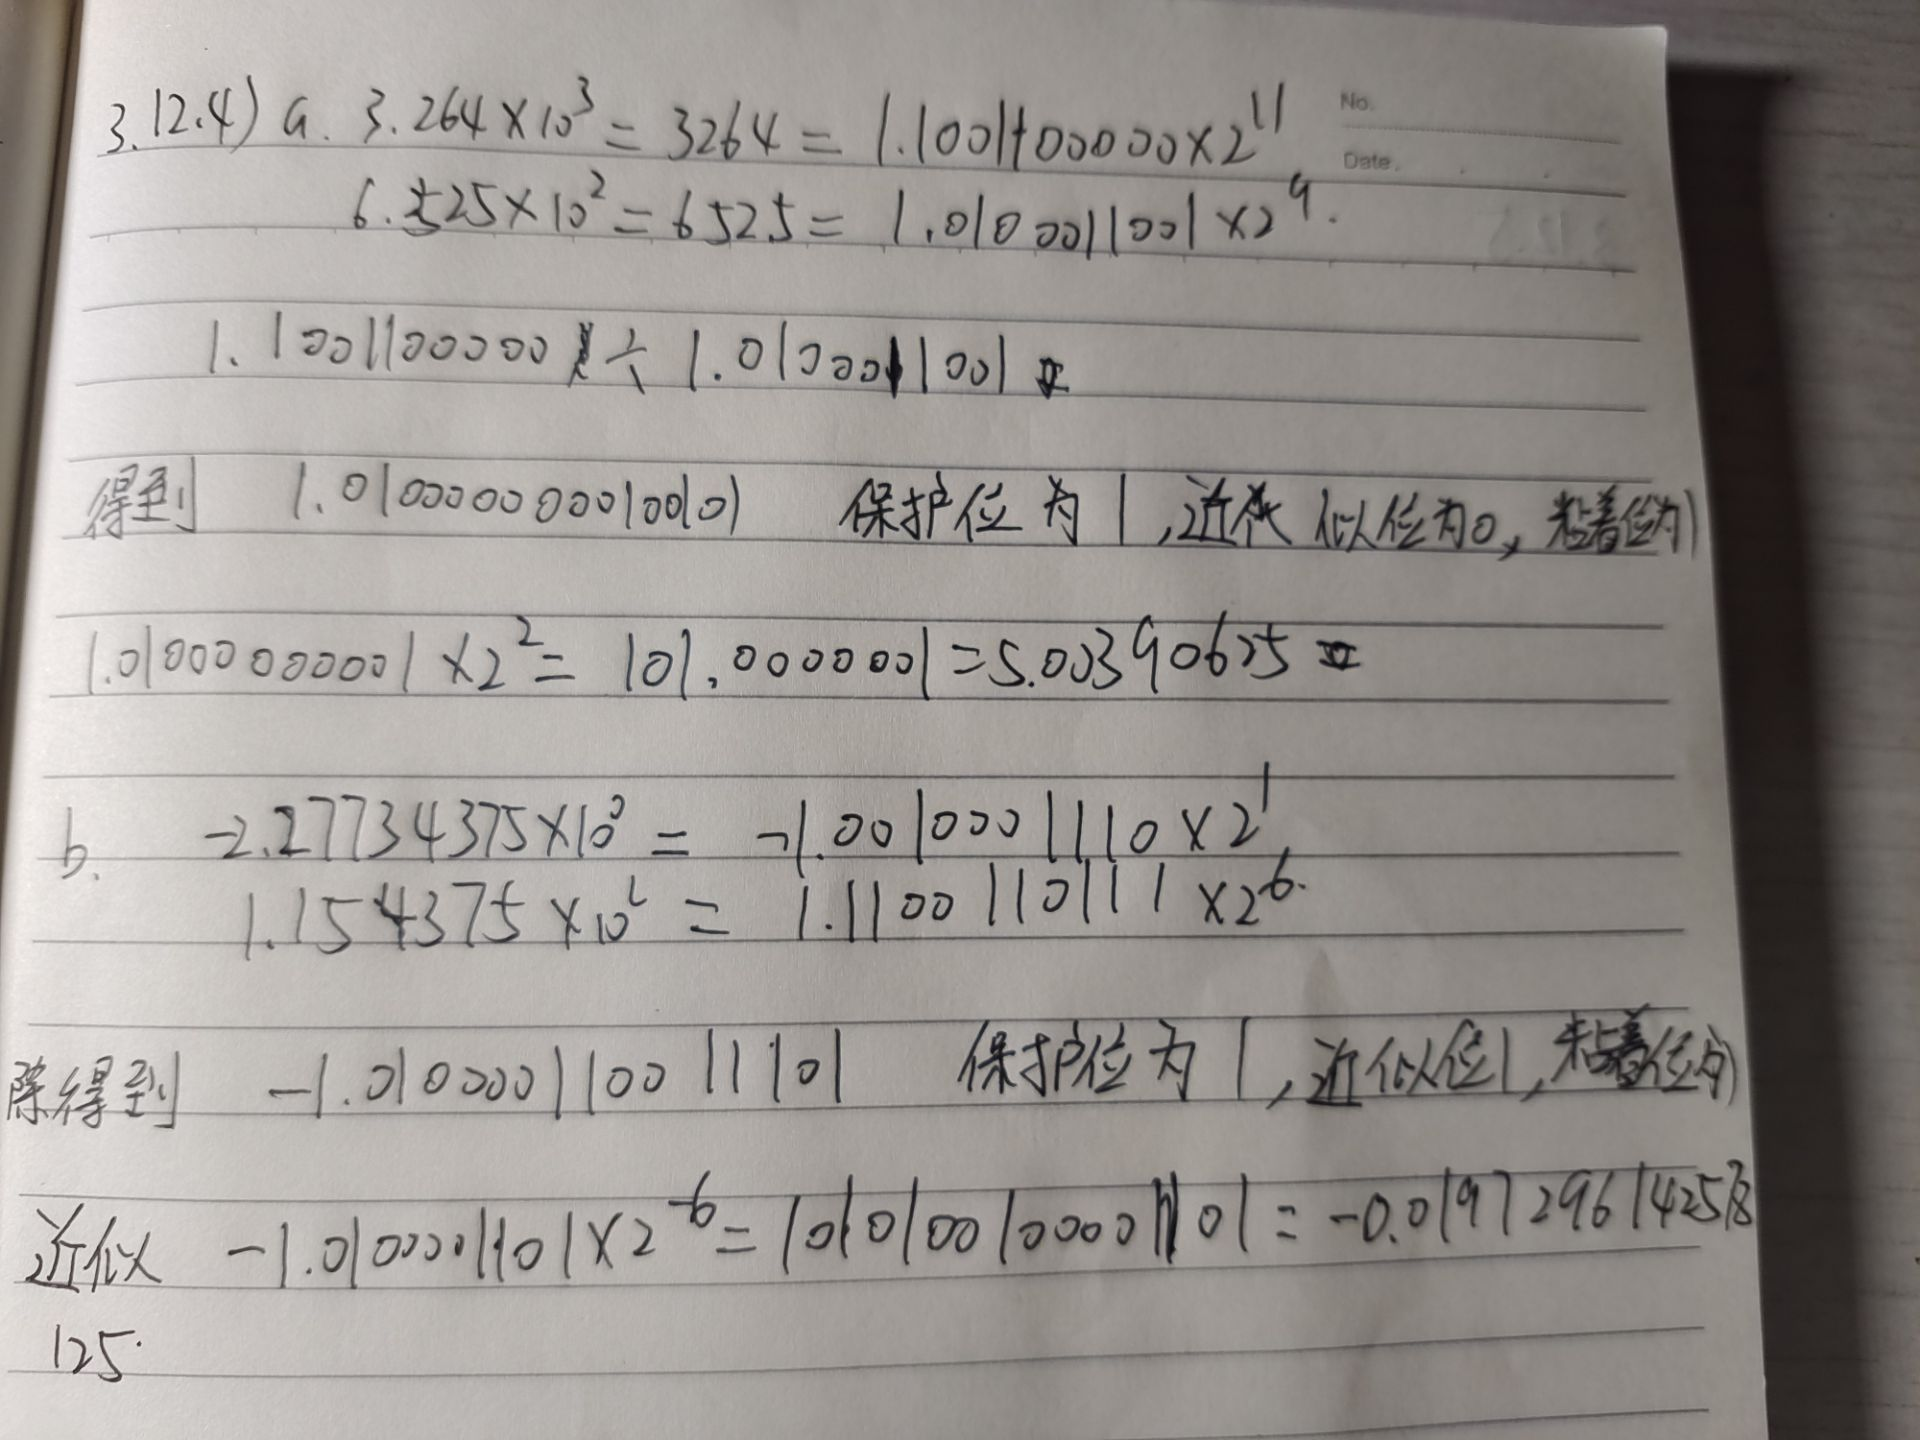 No.
Date.
3.12.4) a. 3.264×10³ = 3264 = 1.1001100000×2¹¹
6.525×10² = 652.5 = 1.0100011001×2⁹.
1.1001100000 ÷ 1.0100011001
得到 1.01000000010010 1 保护位为1,近似位为0,粘着位为1
1.0100000001×2² = 101.00000001=5.00390625
b. -2.27734375×10⁰ = -1.0010001110×2¹
1.154375×10² = 1.1100110111×2⁶.
除得到 -1.01000011001 1101 保护位为1,近似位1,粘着位为1
近似 -1.0100001101×2⁻⁶ = = -0.0197296142578
125.